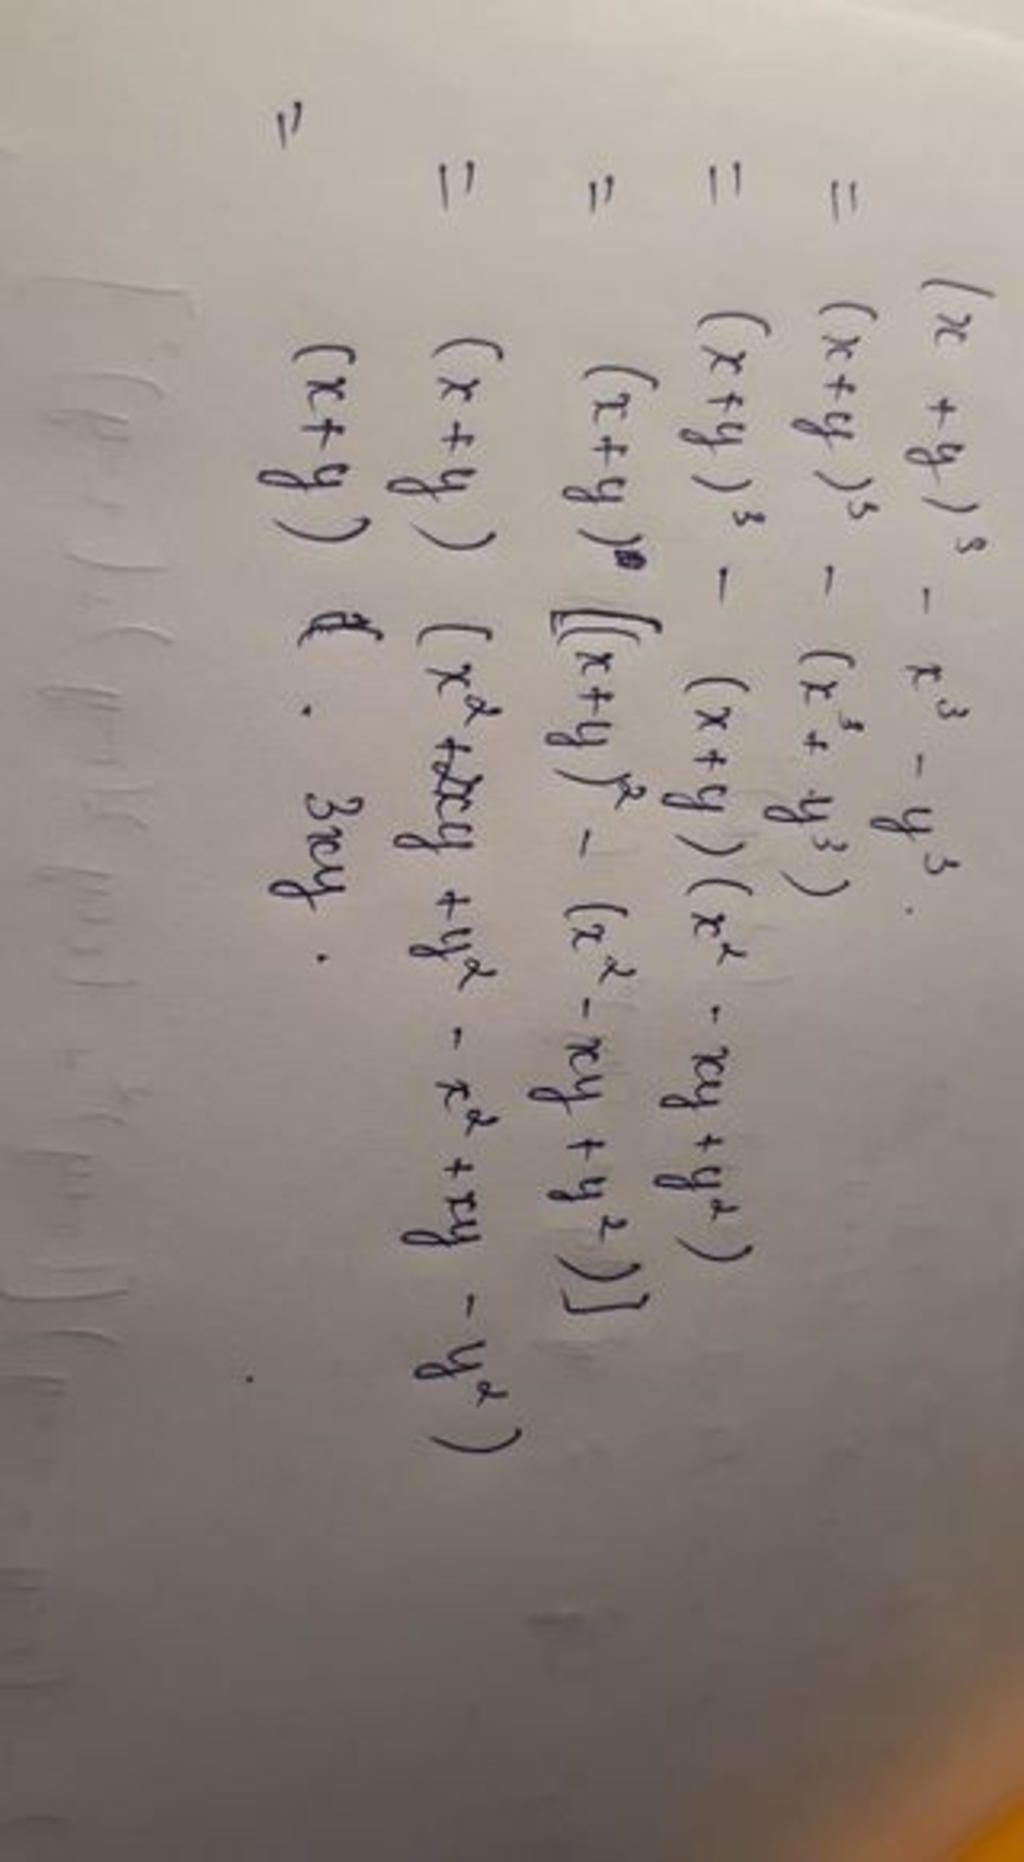 (x + y)³ - x³ - y³.
= (x+y)³ - (x³ + y³)
= (x+y)³ - (x+y)(x² - xy + y²)
= (x+y) [(x+y)² - (x² - xy + y²)]
= (x+y) (x² + 2xy + y² - x² + xy - y²)
= (x+y) . 3xy .